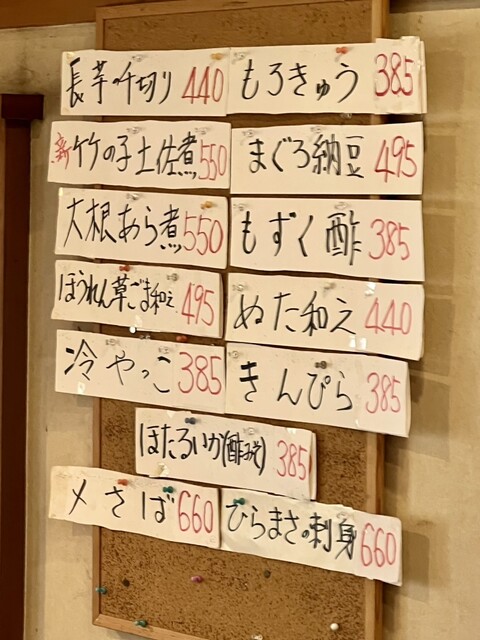 長芋の千切り 440
もろきゅう 385
新竹の子土佐煮 550
まぐろ納豆 495
大根あら煮 550
もずく酢 385
ほうれん草ごま和え 495
ぬた和え 440
冷やっこ 385
きんぴら 385
ほたるいか(酢みそ) 385
〆さば 660
ひらまさの刺身 660